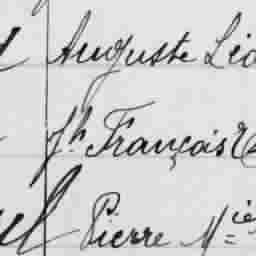 Auguste Léo
Jh François E
Pierre M=ie